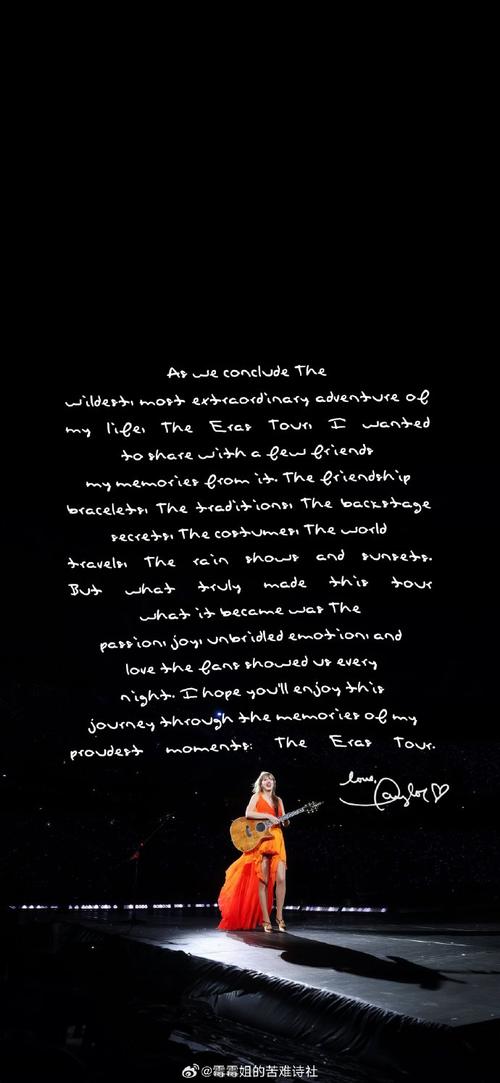 As we conclude The
wildest, most extraordinary adventure of
my life, The Eras Tour, I wanted
to share with a few friends
my memories from it. The friendship
bracelets, The traditions, The backstage
secrets, The costumes, The world
travels, The rain shows and sunsets.
But what truly made this tour
what it became was The
passion, joy, unbridled emotion, and
love the fans showed us every
night. I hope you'll enjoy this
journey through the memories of my
proudest moments: The Eras Tour.
love,
Taylor♡
@霉霉姐的苦难诗社